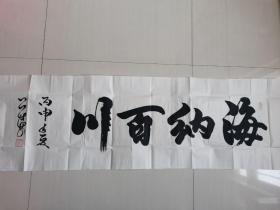 海纳百川
丙申之夏